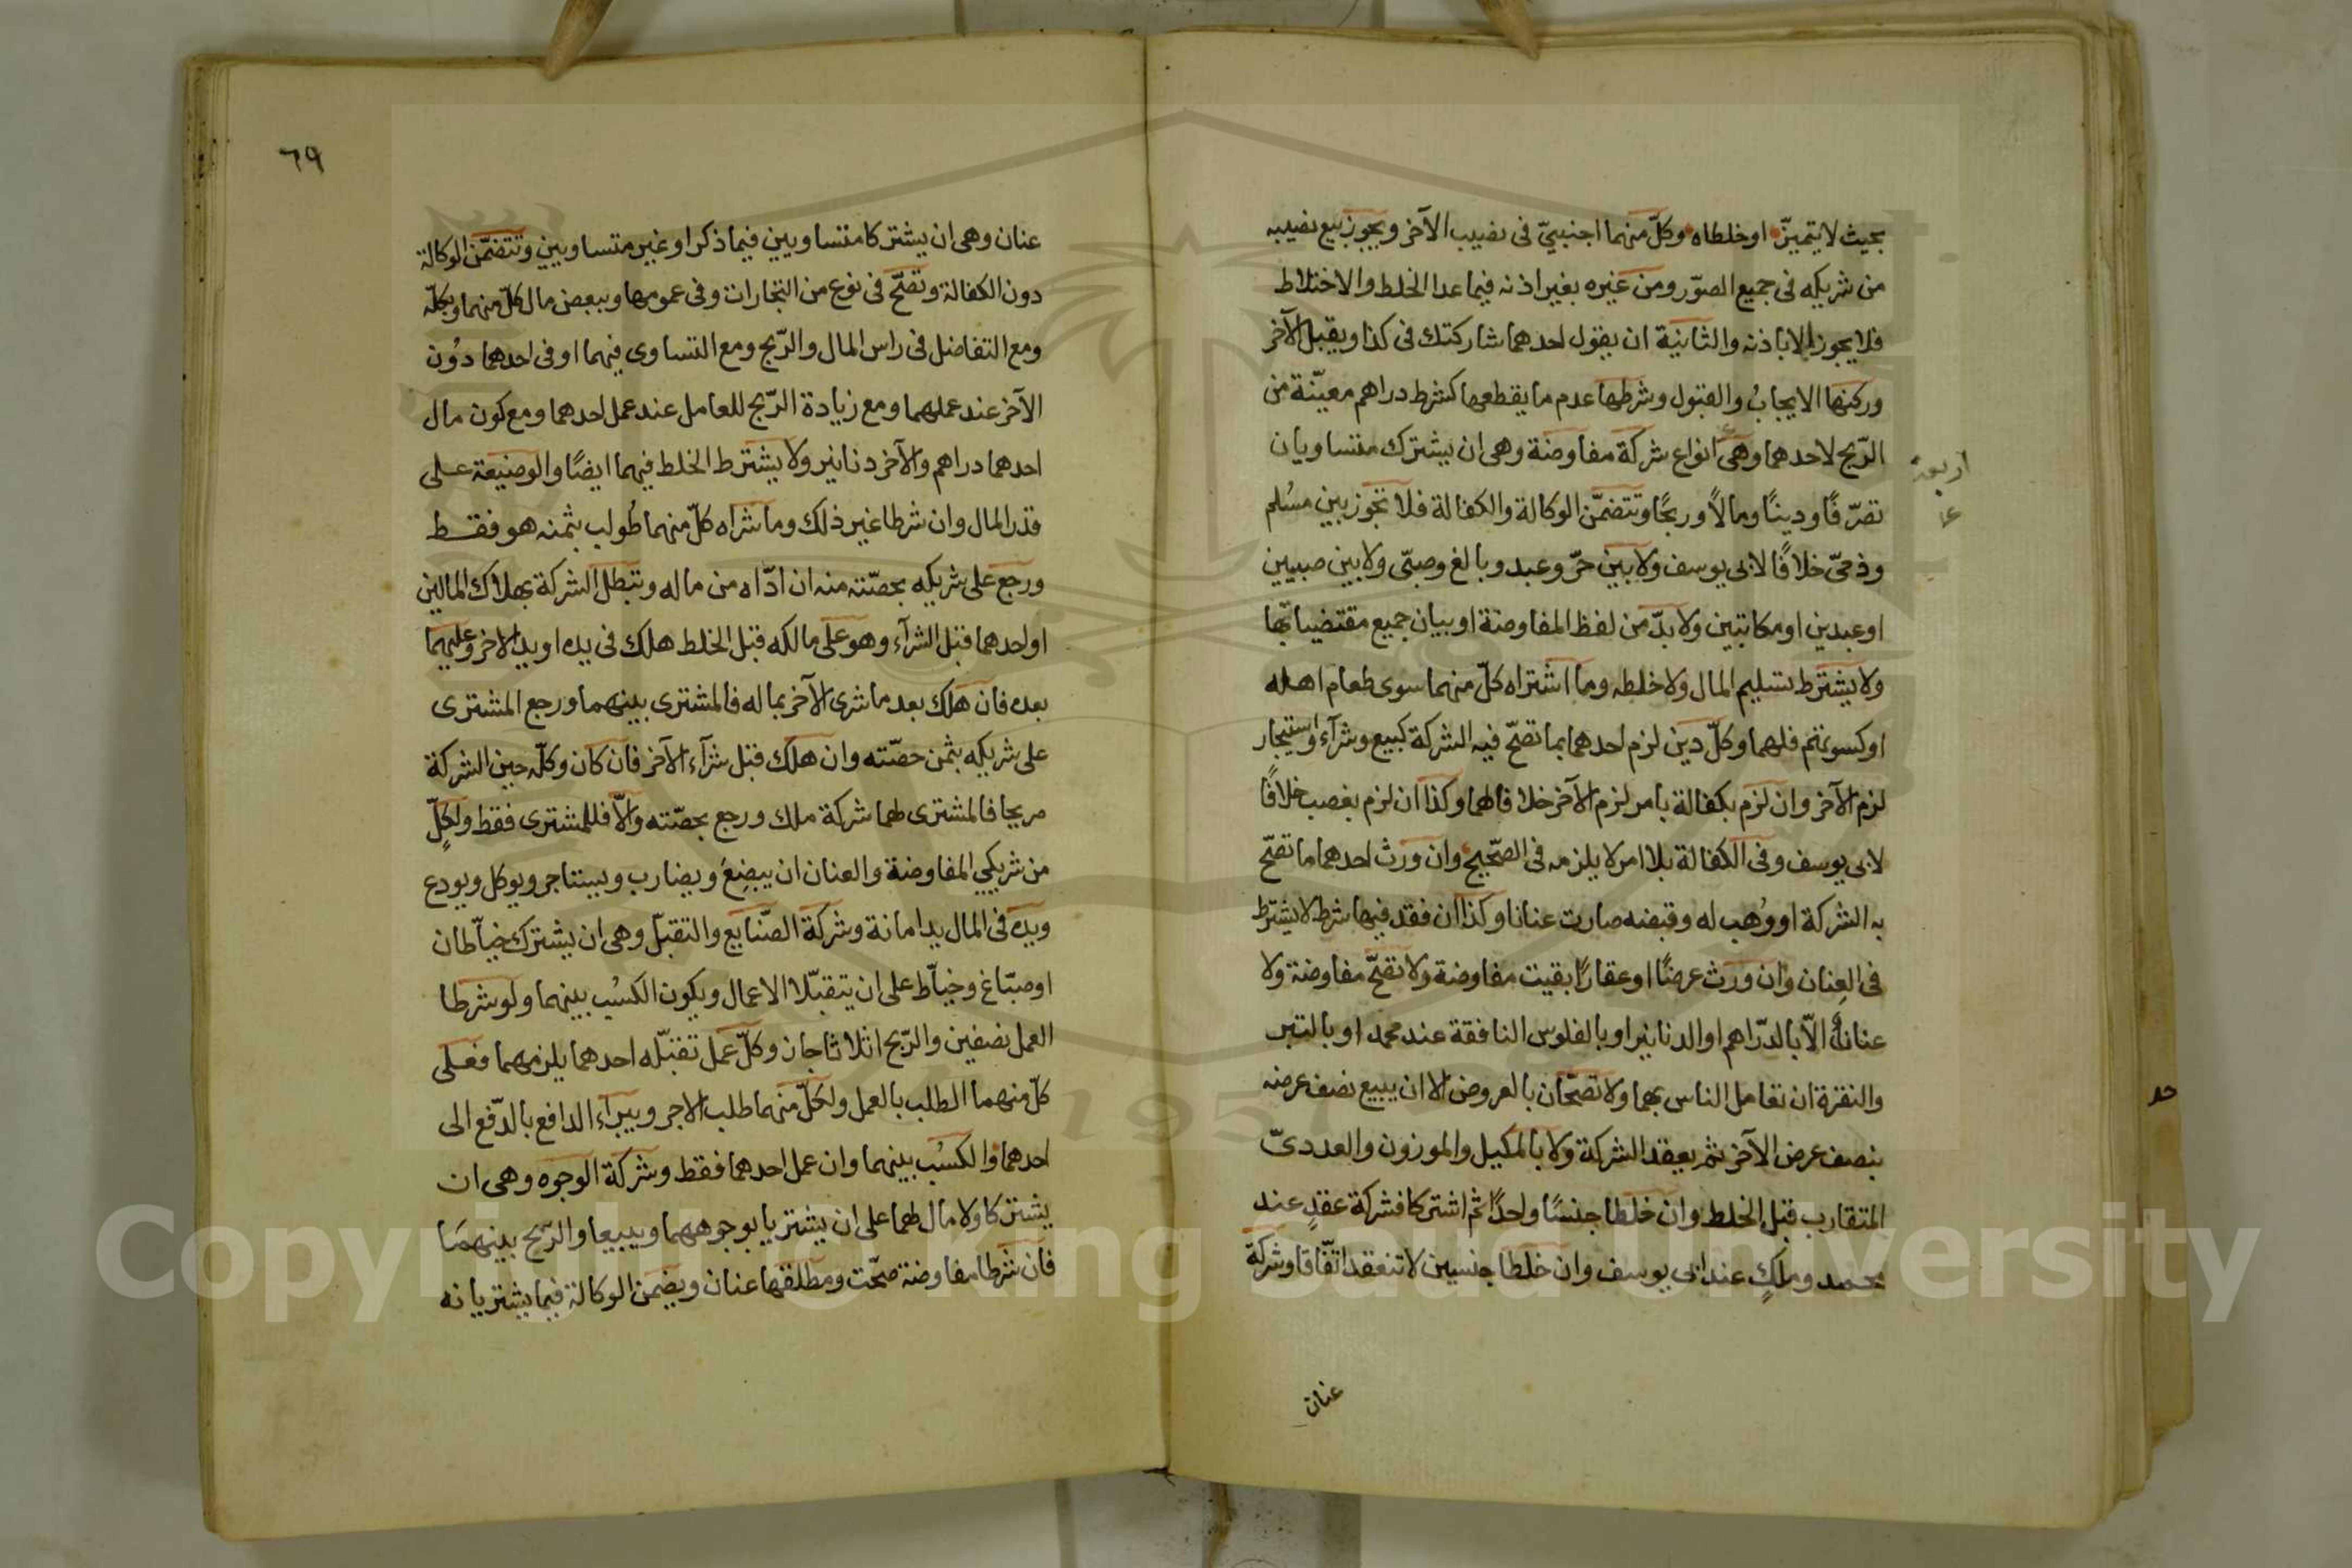 بحيث لا يتميّز او خلطاه وكلّ منهما اجنبيّ فى نصيب الآخر ويجوز بيع نصيبه
من شريكه فى جميع الصّور ومن غيره بغير اذنه فيما عدا الخلط والاختلاط
فلا يجوز الا باذنه والثانية ان يقول احدهما شاركتك فى كذا ويقبل الآخر
وركنها الايجابُ والقبول وشرطها عدم ما يقطعها كشرط دراهم معيّنة من
الرّبح لاحدهما وهى انواع شركة مفاوضة وهى ان يشترك متساويان
اربعة
تصرّفًا ودينًا ومالاً وربحًا وتتضمّن الوكالة والكفالة فلا تجوز بين مسُلم
وذمىّ خلافًا لابى يوسف ولا بين حرّ وعبد وبالغ وصبىّ ولا بين صبيين
او عبدين او مكاتبين ولا بدّ من لفظ المفاوضة او بيان جميع مقتضياتها
ولا يشترط تسليم المال ولا خلطه وما اشتراه كلّ منهما سوى طعام اهله
او كسوتهم فلهما وكلّ دين لزم احدهما بما تصحّ فيه الشركة كبيع وشرآء واستيجار
لزم الآخر وان لزم بكفالة بامر لزم الآخر خلافا لهما وكذا ان لزم بغصب خلافًا
لابى يوسف وفى الكفالة بلا امر لا يلزمه فى الصّحيح وان ورث احدهما ما تصحّ
به الشركة او وُهب له وقبضه صارت عنانا وكذا ان فقد فيها شرط لا يشترط
فى العِنان وان ورث عرضًا او عقارًا بقيت مفاوضة ولا تصحّ مفاوضة ولا
عنانا الاّ بالدّراهم او الدنانير او بالفلوس النافقة عند محمد او بالتبر
والنقرة ان تعامل الناس بهما ولا تصحّان بالعروض الا ان يبيع نصف عرضه
بنصف عرض الآخر ثم يعقد الشركة ولا بالمكيل والموزون والعددىّ
المتقارب قبل الخلط وان خلطا جنسًا واحدًا ثم اشتركا فشركة عقدٍ عند
محمد وملكٍ عند ابى يوسف وان خلطا جنسين لا تنعقد اتّفاقا وشركة
عنان
٦٩
عنان وهى ان يشتركا متساويين فيما ذكر او غير متساويين وتتضمّن الوكالة
دون الكفالة وتصّح فى نوع من التجارات وفى عمومها وببعض مال كلّ منهما وبكلّه
ومع التفاضل فى راس المال والرّبح ومع التساوى فيهما او فى احدهما دوُن
الآخر عند عملهما ومع زيادة الرّبح للعامل عند عمل احدهما ومع كون مال
احدهما دراهم والآخر دنانير ولا يشترط الخلط فيهما ايضًا والوضيعة على
قدر المال وان شرطا غير ذلك وما شراه كلّ منهما طُولب بثمنه هو فقط
ورجع على شريكه بحصّته منه ان ادّاه من ماله وتبطل الشركة بهلاك المالين
او احدهما قبل الشرآء وهو على مالكه قبل الخلط هلك فى يده او يد الاخر وعليهما
بعده فان هلك بعد ما شرى الآخر بماله فالمشترى بينهما ورجع المشترى
على شريكه بثمن حصّته وان هلك قبل شرآء الآخر فان كان وكلّه حين الشركة
صريحا فالمشترى لهما شركة ملك ورجع بحصّته والاّ فللمشترى فقط ولكلٍّ
من شريكي المفاوضة والعنان ان يبضِعَ ويضارب ويستاجر ويوكل ويودع
ويده فى المال يد امانة وشركة الصّنايع والتقبّل وهى ان يشترك خيّاطان
او صبّاغ وخيّاط على ان يتقبّلا الاعمال ويكون الكسُب بينهما ولو شرطا
العمل نصفين والرّبح اثلاثا جاز وكلّ عمل تقبّله احدهما يلزمهما فعلى
كلّ منهما الطلب بالعمل ولكلّ منهما طلب الاجر ويبرآء الدافع بالدّفع الى
احدهما والكسُب بينهما وان عمل احدهما فقط وشركة الوجوه وهى ان
يشتركا ولا مال لهما على ان يشتريا بوجوههما ويبيعا والرّبح بينهمَا
فان شرطا مفاوضة صحّت ومطلقها عنان ويضمن الوكالة فيما يشتريانه
Copyright © King Saud University
1957